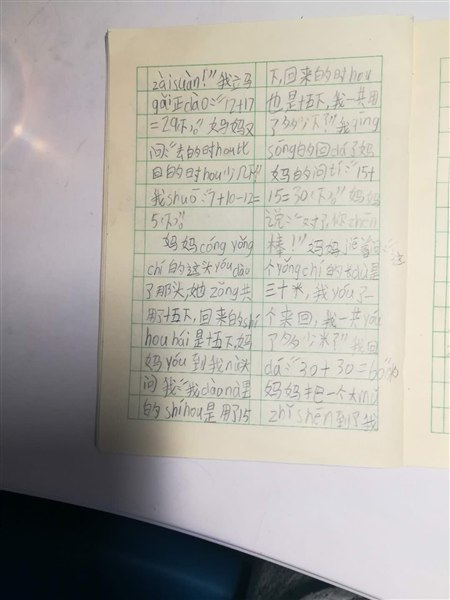 zàisuàn！”我立马
gǎi正dào：“12+17
=29(下)。”妈妈又
问：“去的时hou比
回的时hou少几下”
我shuō：“7+10-12=
5(下)。”
妈妈cóng yǒng
chí的这头yóu dào
了那头，她zǒng共
用了十五下，回来的shí
hou hái是十五下，妈
妈yóu到我
问我：“我dào nà是
的shíhou是用了15
下，回来的时hou
也是十五下，我一共用
了多少下？”我qīng
sōng的回dá了妈
妈的问tí：“15+
15=30(下)。”妈妈
说：“对了，你zhēn
棒！”妈妈
个yǒng chí的
三十米，我yóu了一
个来回，我一共yóu
了多少米？”我回
dá：“30+30=60(米)
妈妈把一个大mǔ
zhǐ shēn到了我